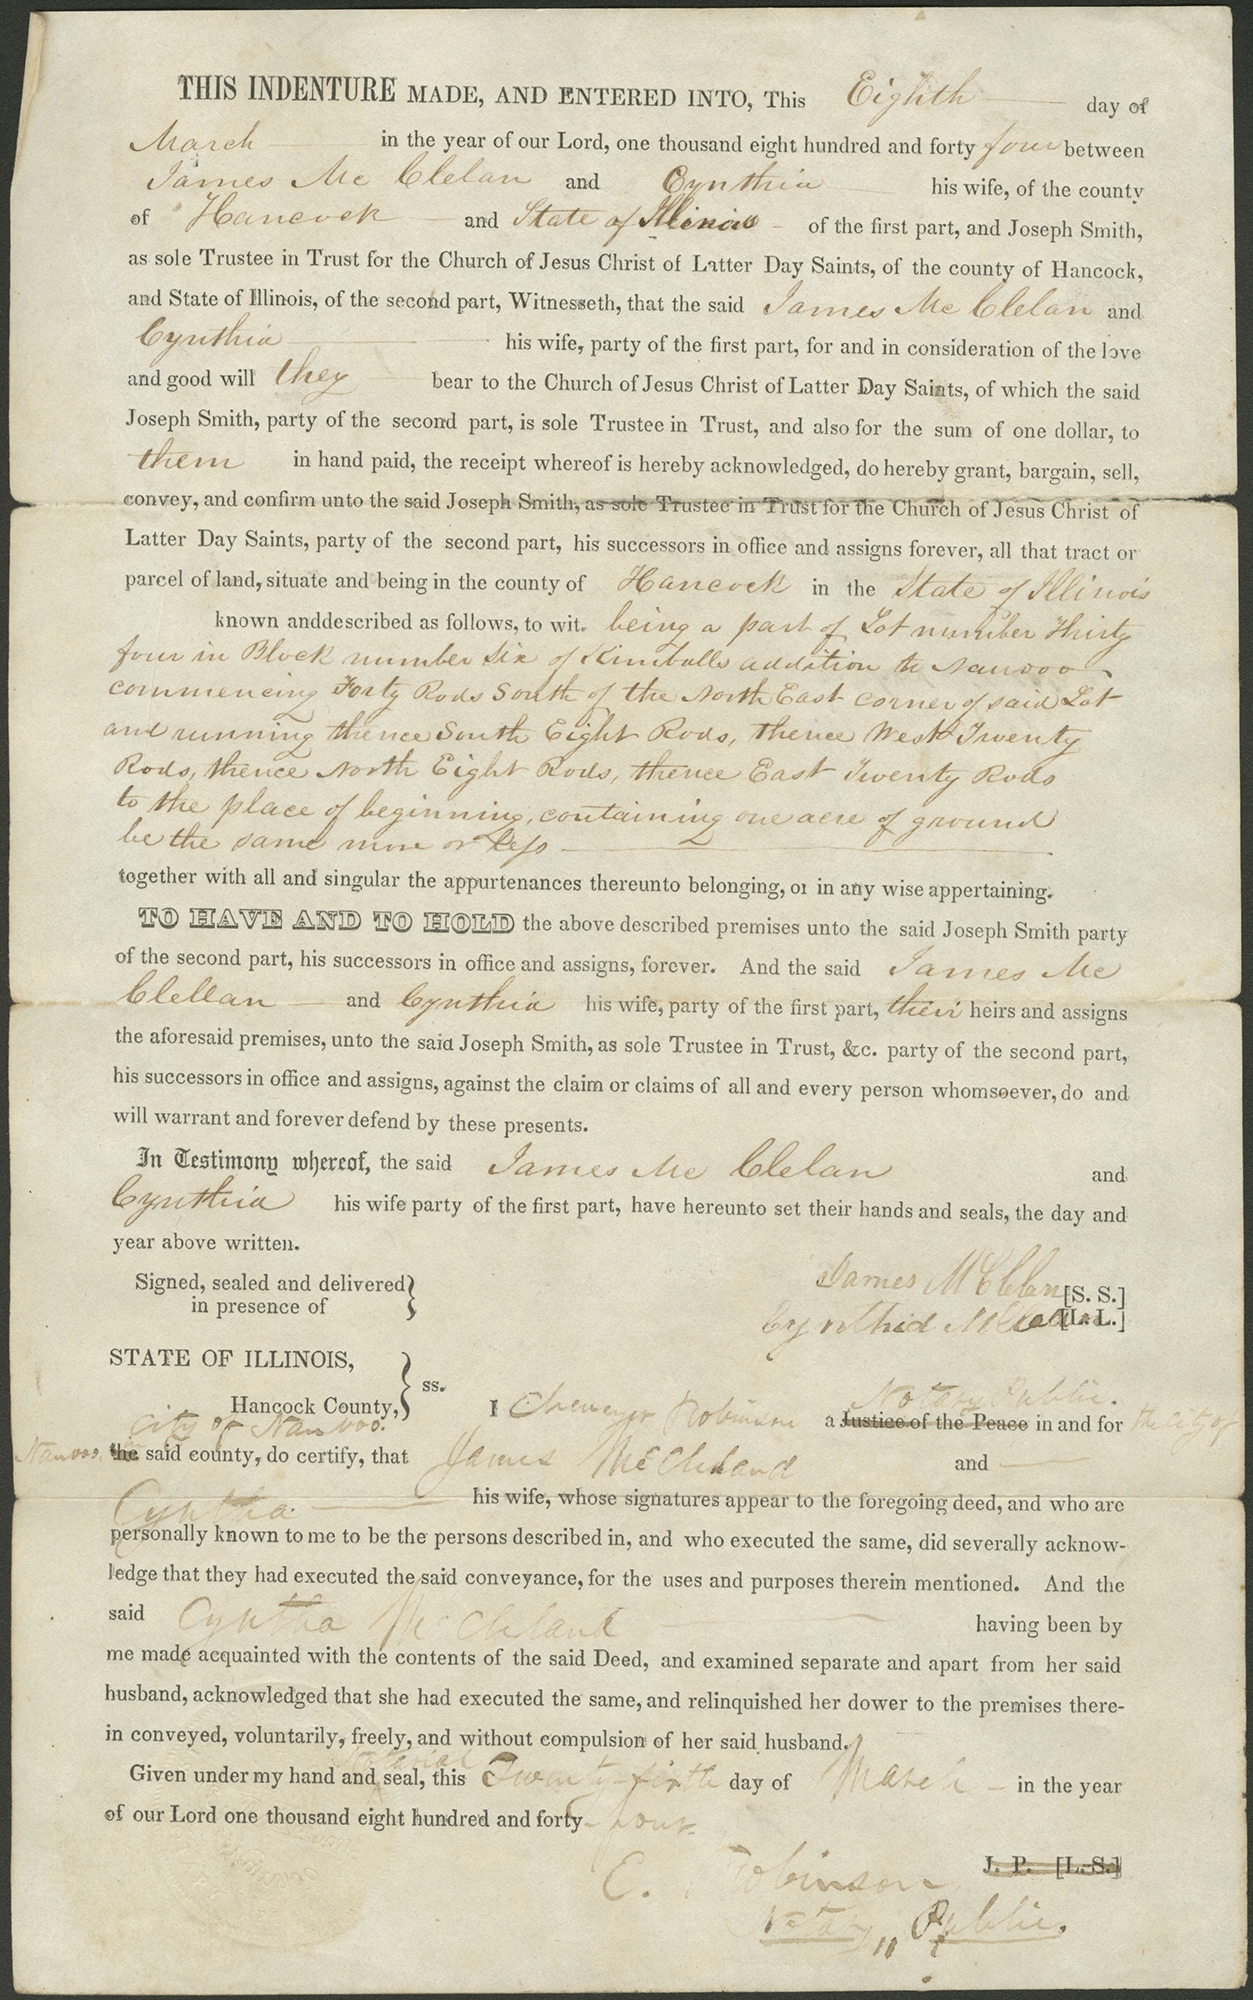 THIS INDENTURE MADE, AND ENTERED INTO, This Eighth day of
March in the year of our Lord, one thousand eight hundred and forty four between
James Mc Clelan and Cynthia his wife, of the county
of Hancock and State of Illinois of the first part, and Joseph Smith,
as sole Trustee in Trust for the Church of Jesus Christ of Latter Day Saints, of the county of Hancock,
and State of Illinois, of the second part, Witnesseth, that the said James Mc Clelan and
Cynthia his wife, party of the first part, for and in consideration of the love
and good will they bear to the Church of Jesus Christ of Latter Day Saints, of which the said
Joseph Smith, party of the second part, is sole Trustee in Trust, and also for the sum of one dollar, to
them in hand paid, the receipt whereof is hereby acknowledged, do hereby grant, bargain, sell,
convey, and confirm unto the said Joseph Smith, as sole Trustee in Trust for the Church of Jesus Christ of
Latter Day Saints, party of the second part, his successors in office and assigns forever, all that tract or
parcel of land, situate and being in the county of Hancock in the State of Illinois
known anddescribed as follows, to wit. being a part of Lot number Thirty
four in Block number Six of Kimballs addition to Nauvoo
commencing Forty Rods South of the North East corner of said Lot
and running thence South Eight Rods, thence West Twenty
Rods, thence North Eight Rods, thence East Twenty Rods
to the place of beginning, containing one acre of ground
be the same more or less
together with all and singular the appurtenances thereunto belonging, or in any wise appertaining.
TO HAVE AND TO HOLD the above described premises unto the said Joseph Smith party
of the second part, his successors in office and assigns, forever. And the said James Mc
Clellan and Cynthia his wife, party of the first part, their heirs and assigns
the aforesaid premises, unto the said Joseph Smith, as sole Trustee in Trust, &c. party of the second part,
his successors in office and assigns, against the claim or claims of all and every person whomsoever, do and
will warrant and forever defend by these presents.
In Testimony whereof, the said James Mc Clelan and
Cynthia his wife party of the first part, have hereunto set their hands and seals, the day and
year above written.
Signed, sealed and delivered } James McClelan [S. S.]
in presence of Cynthia [L. L.]
STATE OF ILLINOIS,
Hancock County, } ss. I Robinson a Notary Public. Justice of the Peace in and for the City of
City of Nauvoo.
Nauvoo. the said county, do certify, that James McCleland and
Cyntha his wife, whose signatures appear to the foregoing deed, and who are
personally known to me to be the persons described in, and who executed the same, did severally acknow-
ledge that they had executed the said conveyance, for the uses and purposes therein mentioned. And the
said Cyntha McCleland having been by
me made acquainted with the contents of the said Deed, and examined separate and apart from her said
husband, acknowledged that she had executed the same, and relinquished her dower to the premises there-
in conveyed, voluntarily, freely, and without compulsion of her said husband.
Given under my hand and Notarial seal, this Twenty fifth day of March in the year
of our Lord one thousand eight hundred and forty four.
J. P. [L. S.]
C. Robinson
Notary Public.